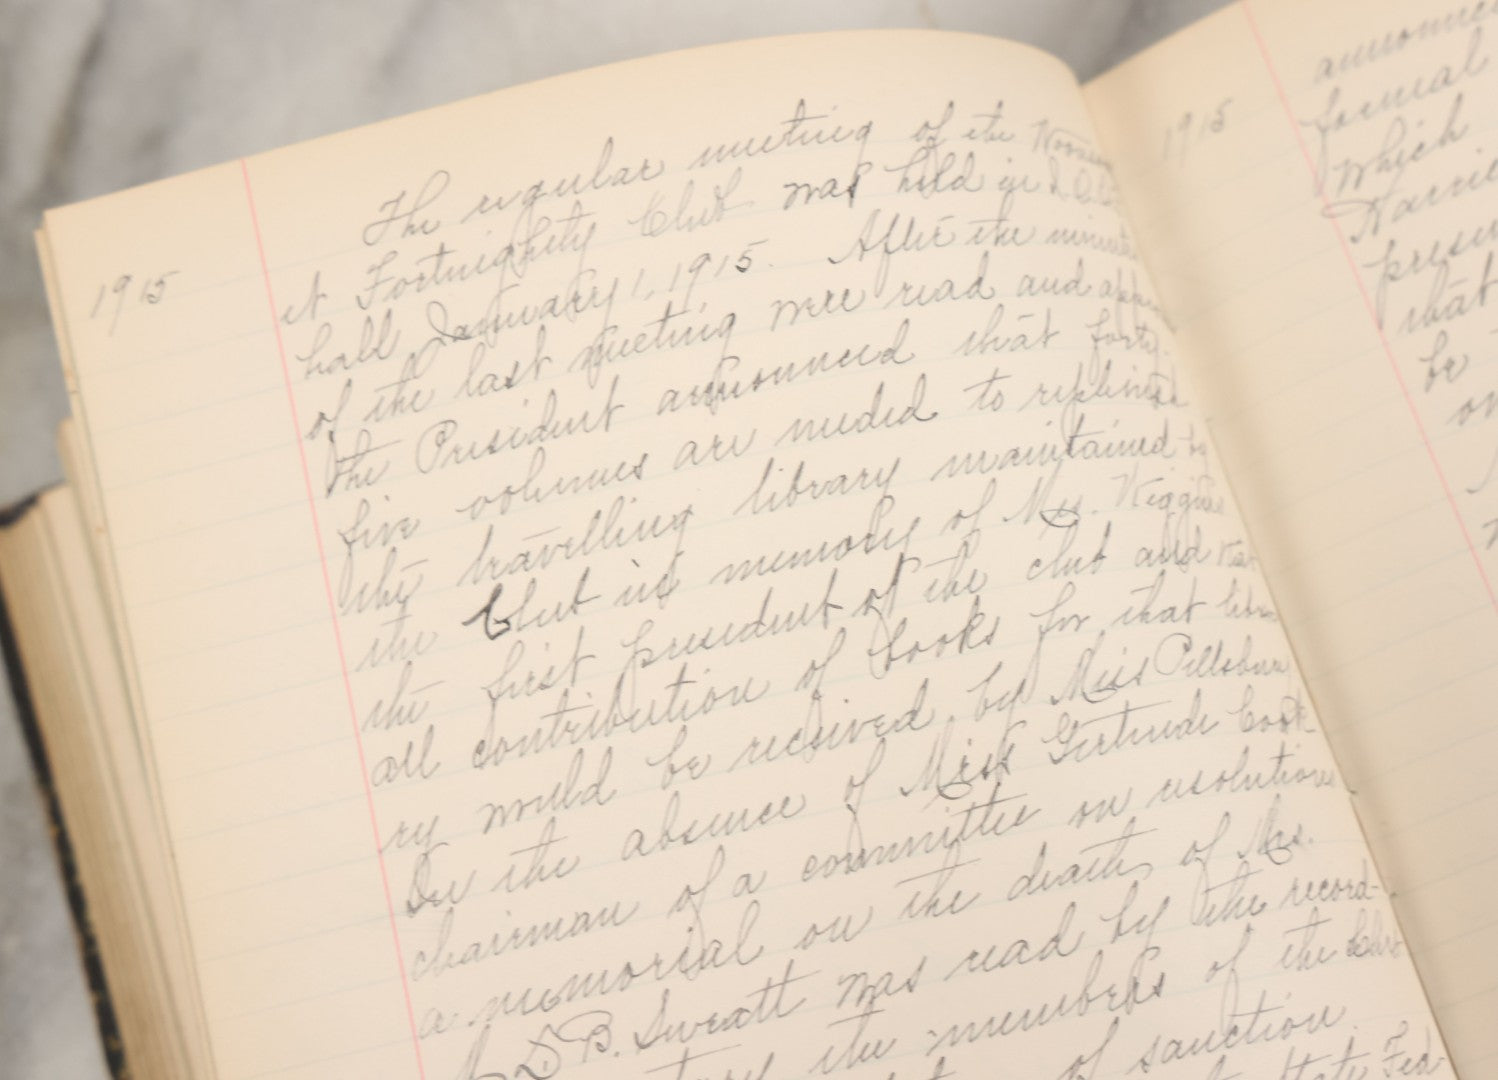 1915
The regular meeting of the Woman
's Fortnightly Club was held in
hall January 1, 1915. After the minutes
of the last meeting were read and
the President announced that forty-
five volumes are needed to replenish
the travelling library maintained by
the Club in memory of Mrs. Wiggin
the first president of the club and that
all contribution of books for that libra
ry would be received by Miss Pillsbury
In the absence of Miss Gertrude Cook
chairman of a committee on resolutions
a memorial on the death of Mrs.
D. B. Sweatt was read by the record-
the members of the Club
of sanction
State Fed-
1915
announce
formal
which
Harrie
presen
that
be
on